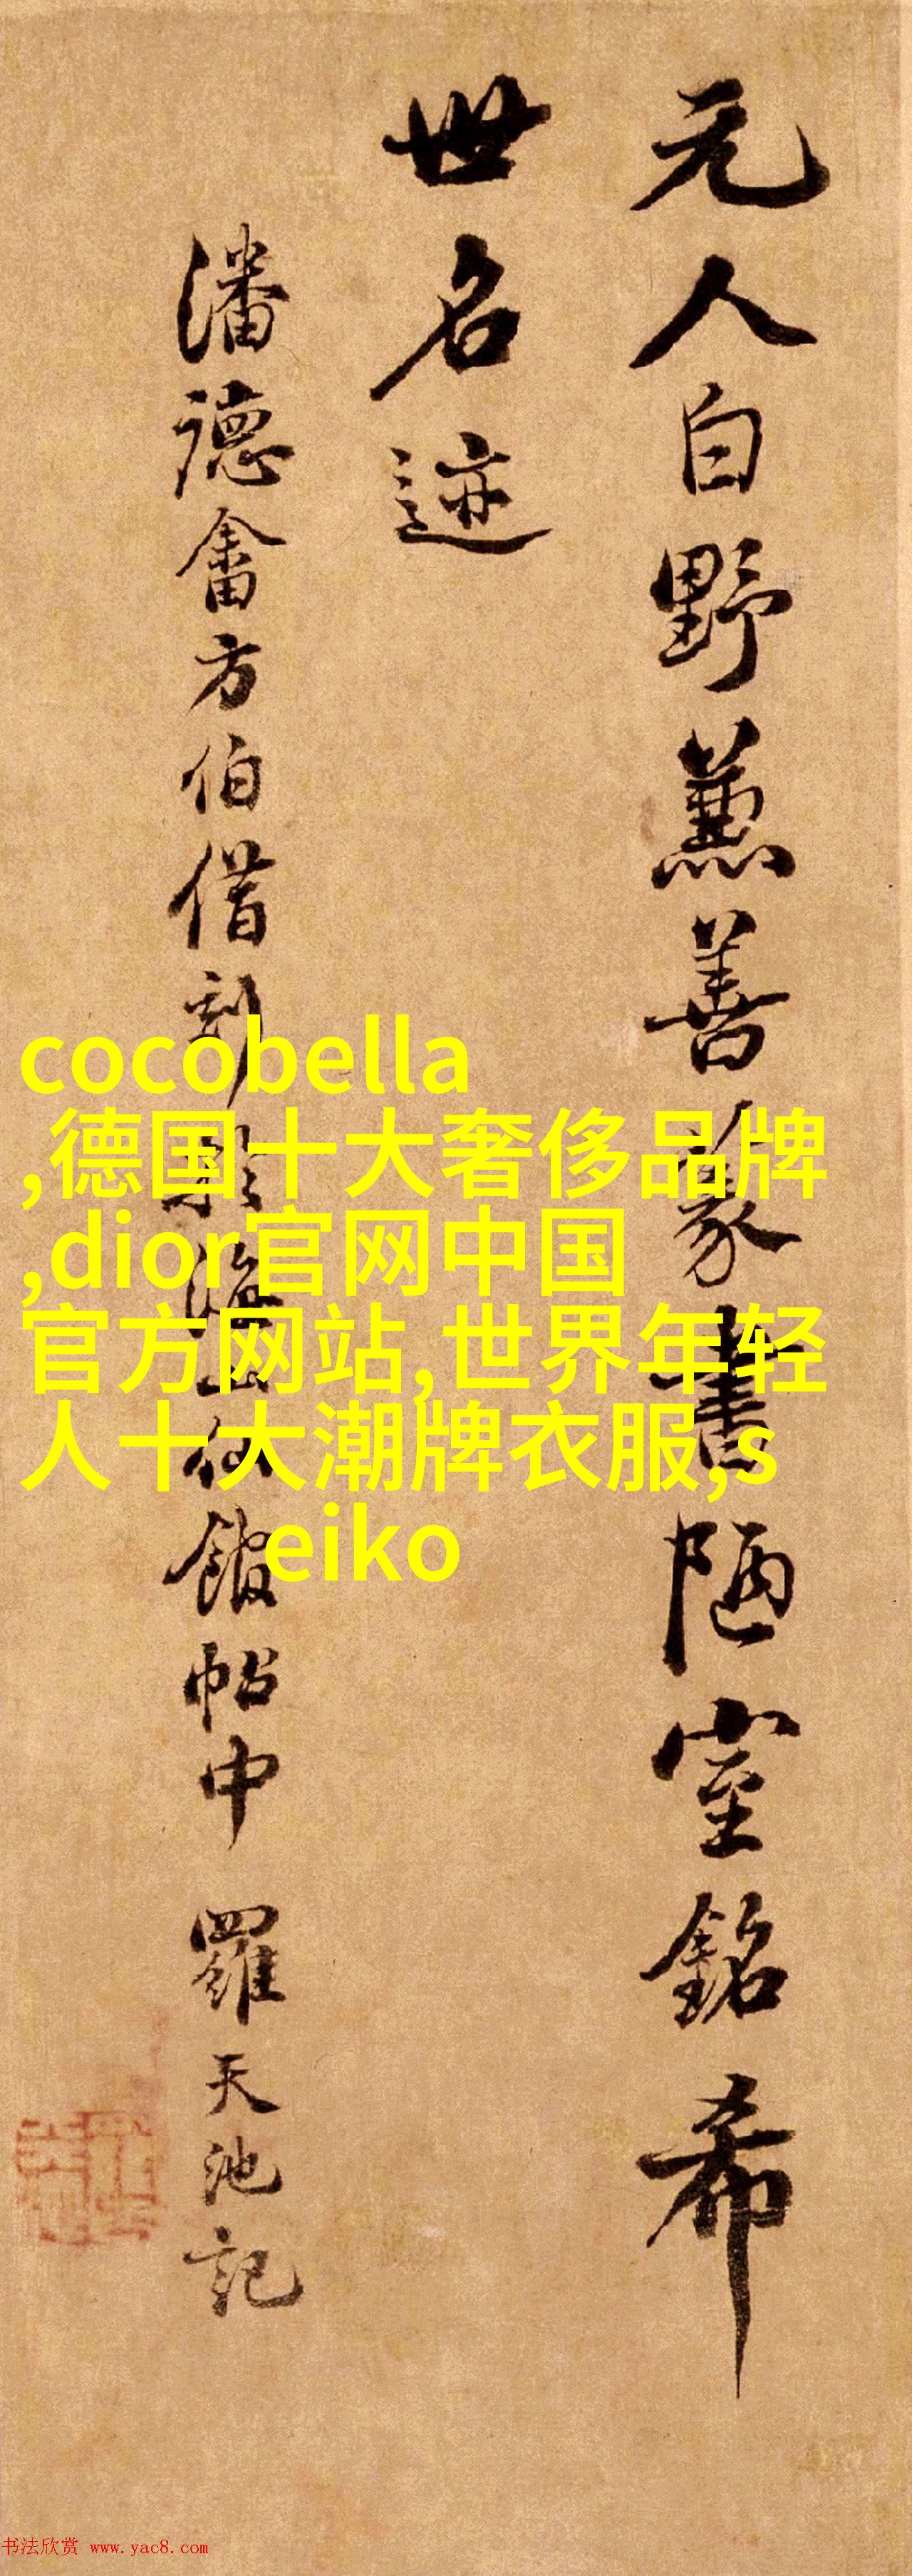 元人白野兼善篆書陋室銘希
世名迹
潘德畬方伯借刻於海山仙館帖中 羅天池記
cocobella
,德国十大奢侈品牌
,dior官网中国
官方网站,世界年轻
人十大潮牌衣服,s
eiko
书法欣赏 www.yac8.com